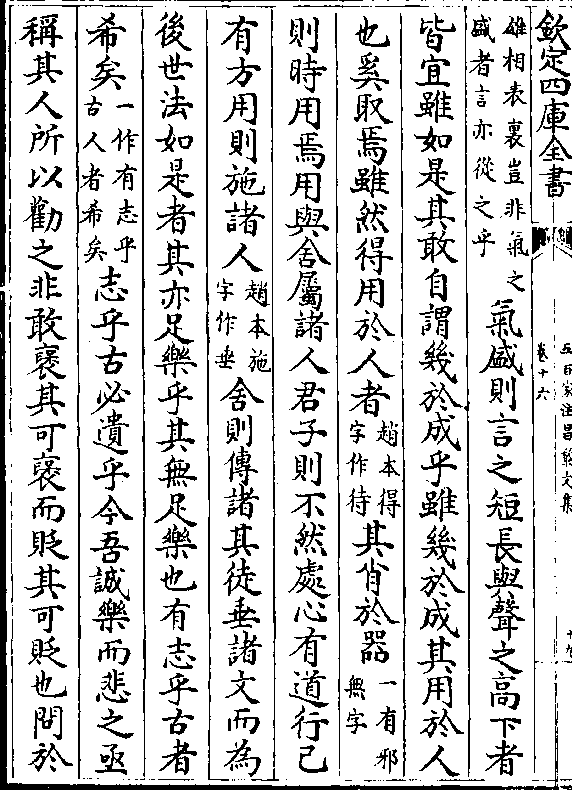 欽定四庫全書
五百家注昌黎文集
卷十六
雄相表裏豈非氣之
盛者言亦從之乎
氣盛則言之短長與聲之高下者
皆宜雖如是其敢自謂幾於成乎雖幾於成其用於人
也奚取焉雖然得用於人者
趙本得
字作待
其肖於器
一有邪
無字
則時用焉用與舍屬諸人君子則不然處心有道行己
有方用則施諸人
趙本施
字作垂
舍則傳諸其徒垂諸文而為
後世法如是者其亦足樂乎其無足樂也有志乎古者
希矣
一作有志乎
古人者希矣
志乎古必遺乎今吾誠樂而悲之亟
稱其人所以勸之非敢褒其可褒而貶其可貶也問於